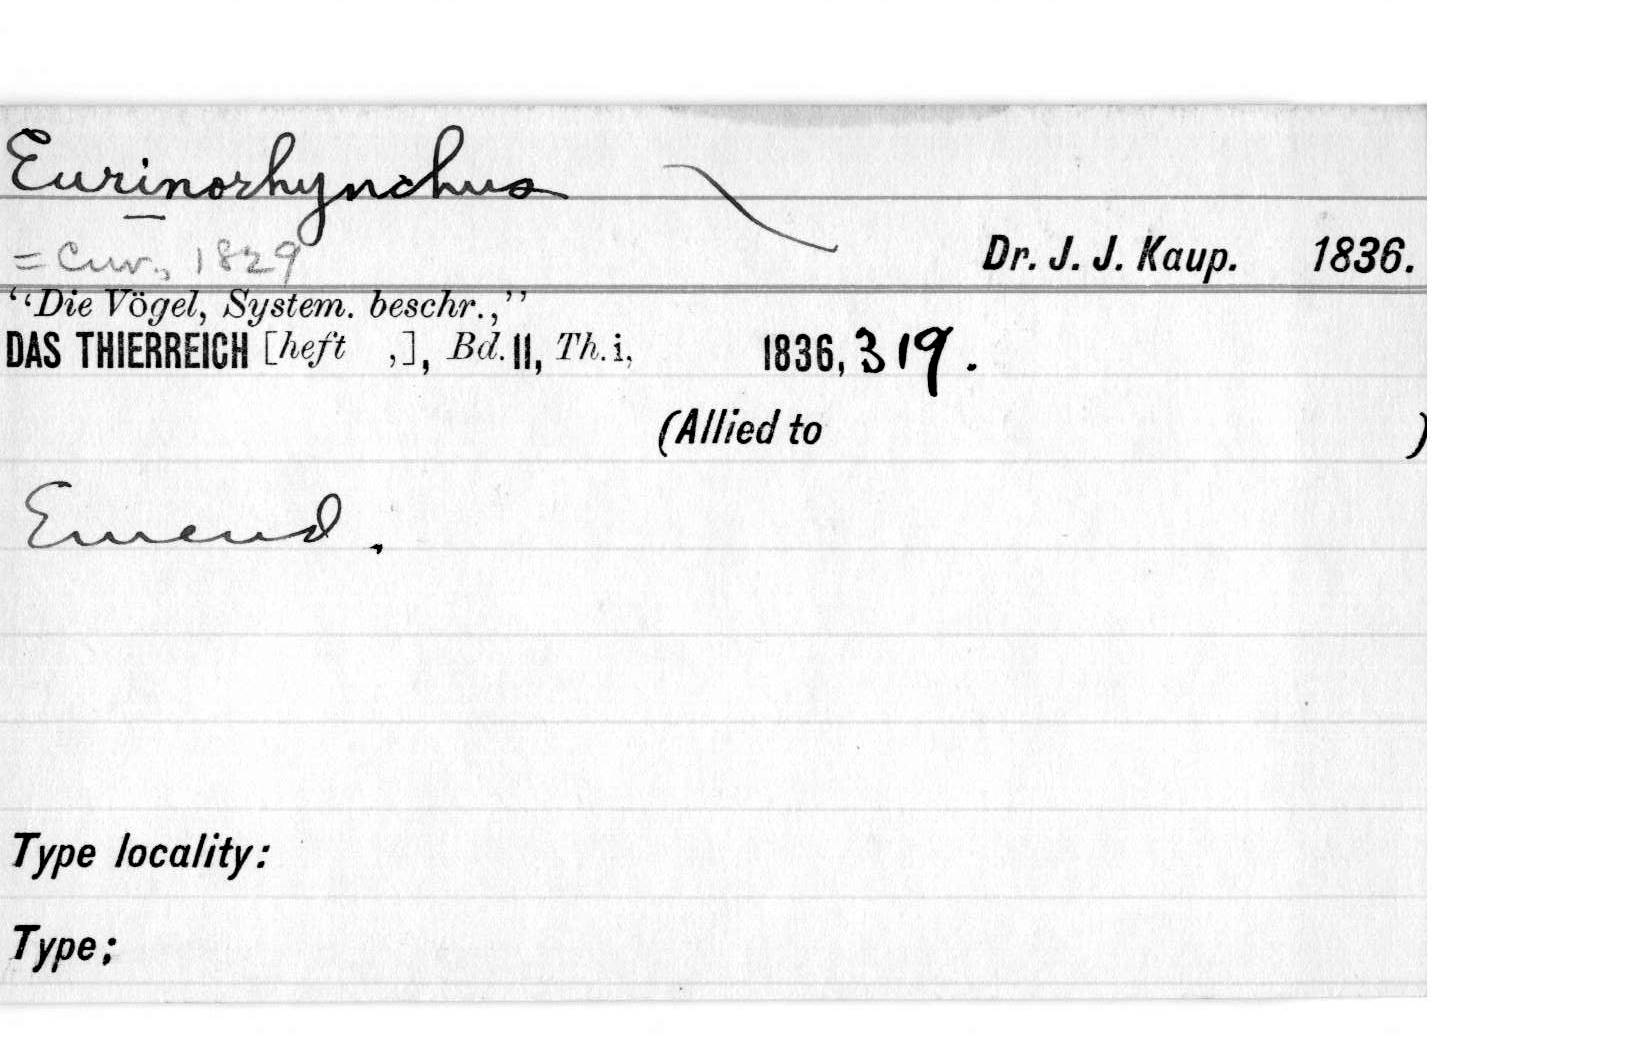 Eurinorhynchus
= Cuv., 1829
Dr. J. J. Kaup. 1836.
"Die Vögel, System. beschr.,"
DAS THIERREICH [heft ,], Bd. II, Th. i. 1836, 319.
(Allied to )
Emend.
Type locality:
Type;